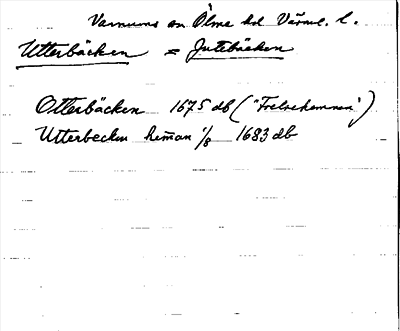 Varnums sn Ölme hd Värml. l.
Utterbäcken = Jutebäcken
Otterbäcken 1675 db ("Frelsehemman")
Utterbecken heman 1/8 1683 db